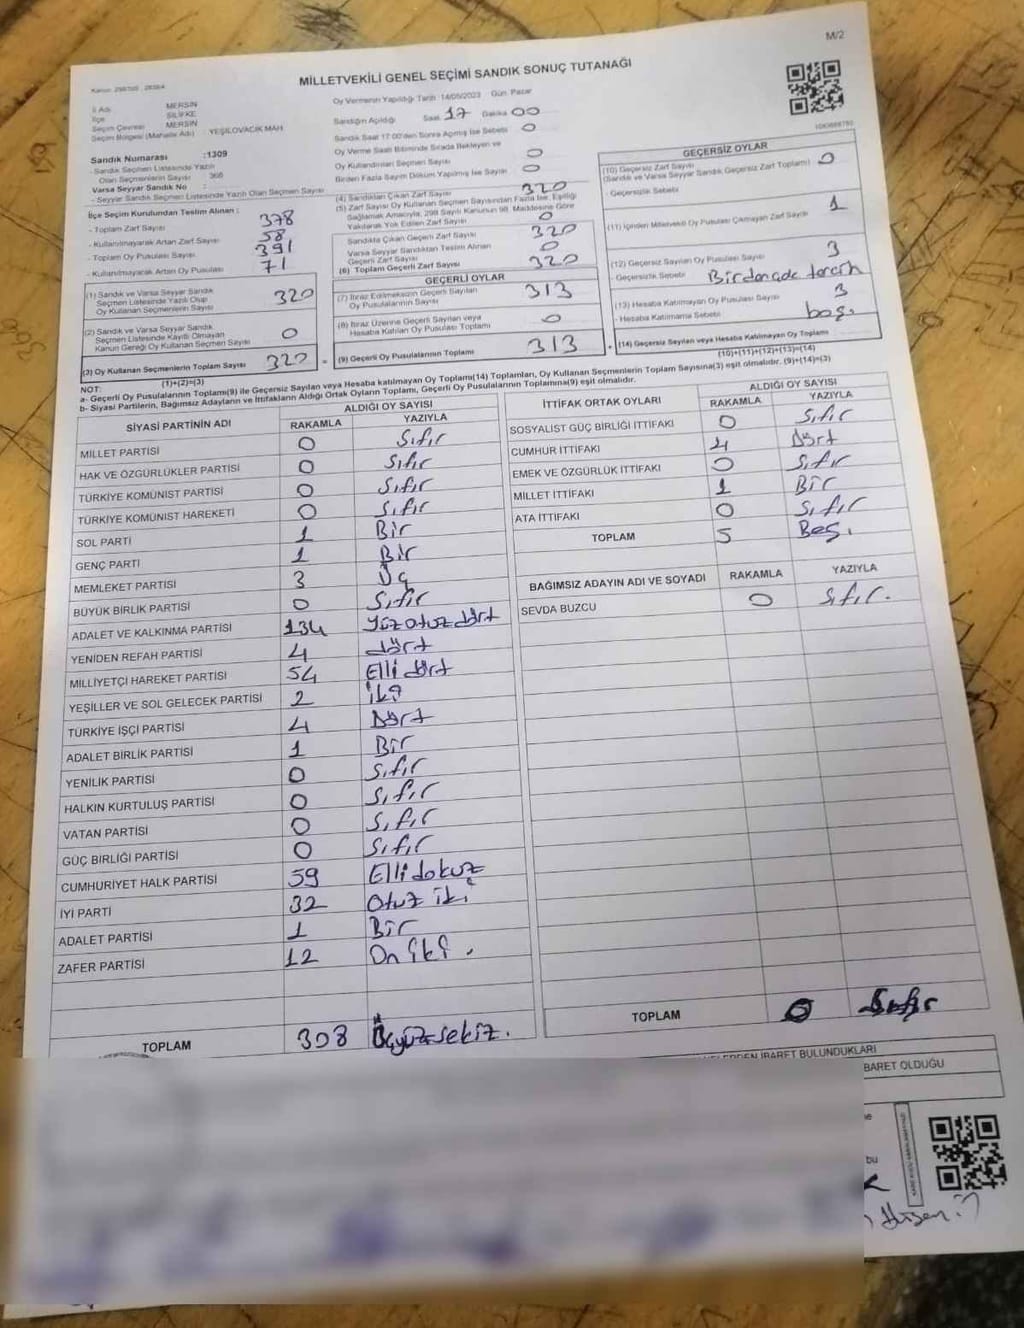 M/2
MİLLETVEKİLİ GENEL SEÇİMİ SANDIK SONUÇ TUTANAĞI
İl Adı MERSİN
İlçe SİLİFKE
Seçim Çevresi MERSİN
Seçim Bölgesi (Mahalle Adı) : YEŞİLOVACIK MAH
Sandık Numarası :1309
- Sandık Seçmen Listesinde Yazılı
Olan Seçmenlerin Sayısı
Varsa Seyyar Sandık No :
- Seyyar Sandık Seçmen Listesinde Yazılı Olan Seçmen Sayısı
İlçe Seçim Kurulundan Teslim Alınan :
- Toplam Zarf Sayısı 378
- Kullanılmayarak Artan Zarf Sayısı 58
- Toplam Oy Pusulası Sayısı 391
- Kullanılmayarak Artan Oy Pusulası 71
(1) Sandık ve Varsa Seyyar Sandık
Seçmen Listesinde Yazılı Olup
Oy Kullanan Seçmenlerin Sayısı 320
(2) Sandık ve Varsa Seyyar Sandık
Seçmen Listesinde Kayıtlı Olmayan
Kanun Gereği Oy Kullanan Seçmen Sayısı 0
(3) Oy Kullanan Seçmenlerin Toplam Sayısı 320
(1)+(2)=(3)
Oy Vermenin Yapıldığı Tarih :14/05/2023 Gün: Pazar
Sandığın Açıldığı Saat 17 Dakika 00
Sandık Saat 17:00'den Sonra Açmış İse Sebebi 0
Oy Verme Saati Bitiminde Sırada Bekleyen ve
Oy Kullandırılan Seçmen Sayısı 0
Birden Fazla Sayım Döküm Yapılmış İse Sayısı 0
(4) Sandıktan Çıkan Zarf Sayısı 320
(5) Zarf Sayısı Oy Kullanan Seçmen Sayısından Fazla İse, Eşitliği
Sağlamak Amacıyla, 298 Sayılı Kanunun 98. Maddesine Göre
Yakılarak Yok Edilen Zarf Sayısı 0
Sandıkta Çıkan Geçerli Zarf Sayısı 320
Varsa Seyyar Sandıktan Teslim Alınan
Geçerli Zarf Sayısı 0
(6) Toplam Geçerli Zarf Sayısı 320
GEÇERLİ OYLAR
(7) İtiraz Edilmeksizin Geçerli Sayılan
Oy Pusulalarının Sayısı 313
(8) İtiraz Üzerine Geçerli Sayılan veya
Hesaba Katılan Oy Pusulası Toplamı 0
= (9) Geçerli Oy Pusulalarının Toplamı 313
GEÇERSİZ OYLAR
(10) Geçersiz Zarf Sayısı
(Sandık ve Varsa Seyyar Sandık Geçersiz Zarf Toplamı) 0
- Geçersizlik Sebebi
(11) İçinden Milletvekili Oy Pusulası Çıkmayan Zarf Sayısı 1
(12) Geçersiz Sayılan Oy Pusulası Sayısı 3
- Geçersizlik Sebebi Birden çok tercih
(13) Hesaba Katılmayan Oy Pusulası Sayısı 3
- Hesaba Katılmama Sebebi boş.
+ (14) Geçersiz Sayılan veya Hesaba Katılmayan Oy Toplamı
(10)+(11)+(12)+(13)=(14)
NOT:
a- Geçerli Oy Pusulalarının Toplamı(9) ile Geçersiz Sayılan veya Hesaba katılmayan Oy Toplamı(14) Toplamları, Oy Kullanan Seçmenlerin Toplam Sayısına(3) eşit olmalıdır. (9)+(14)=(3)
b- Siyasi Partilerin, Bağımsız Adayların ve İttifakların Aldığı Ortak Oyların Toplamı, Geçerli Oy Pusulalarının Toplamına(9) eşit olmalıdır.
SİYASİ PARTİNİN ADI ALDIĞI OY SAYISI
RAKAMLA YAZIYLA
MİLLET PARTİSİ 0 Sıfır
HAK VE ÖZGÜRLÜKLER PARTİSİ 0 Sıfır
TÜRKİYE KOMÜNİST PARTİSİ 0 Sıfır
TÜRKİYE KOMÜNİST HAREKETİ 0 Sıfır
SOL PARTİ 1 Bir
GENÇ PARTİ 1 Bir
MEMLEKET PARTİSİ 3 Üç
BÜYÜK BİRLİK PARTİSİ 0 Sıfır
ADALET VE KALKINMA PARTİSİ 134 Yüz otuz dört
YENİDEN REFAH PARTİSİ 4 dört
MİLLİYETÇİ HAREKET PARTİSİ 54 Elli dört
YEŞİLLER VE SOL GELECEK PARTİSİ 2 iki
TÜRKİYE İŞÇİ PARTİSİ 4 Dört
ADALET BİRLİK PARTİSİ 1 Bir
YENİLİK PARTİSİ 0 Sıfır
HALKIN KURTULUŞ PARTİSİ 0 Sıfır
VATAN PARTİSİ 0 Sıfır
GÜÇ BİRLİĞİ PARTİSİ 0 Sıfır
CUMHURİYET HALK PARTİSİ 59 Elli dokuz
İYİ PARTİ 32 Otuz iki
ADALET PARTİSİ 1 Bir
ZAFER PARTİSİ 12 On iki.
TOPLAM 308 Üçyüzsekiz.
İTTİFAK ORTAK OYLARI ALDIĞI OY SAYISI
RAKAMLA YAZIYLA
SOSYALİST GÜÇ BİRLİĞİ İTTİFAKI 0 Sıfır
CUMHUR İTTİFAKI 4 Dört
EMEK VE ÖZGÜRLÜK İTTİFAKI 0 Sıfır
MİLLET İTTİFAKI 1 Bir
ATA İTTİFAKI 0 Sıfır
TOPLAM 5 Beş.
BAĞIMSIZ ADAYIN ADI VE SOYADI RAKAMLA YAZIYLA
SEVDA BUZCU 0 Sıfır.
TOPLAM 0 Sıfır
İBARET BULUNDUKLARI
BARET OLDUĞU
bu